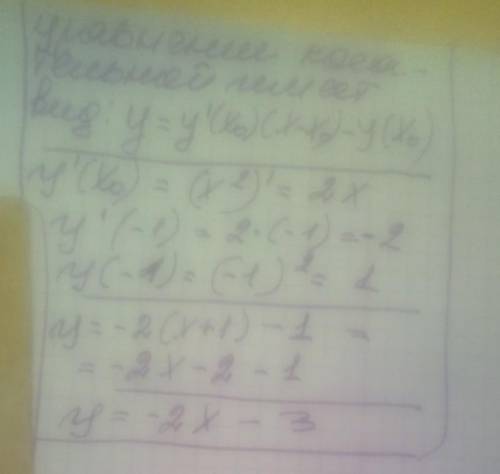 уравнение каса-
тельной имеет
вид: y = y'(x₀)(x-x₀)-y(x₀)
y'(x₀) = (x²)' = 2x
y'(-1) = 2·(-1) = -2
y(-1) = (-1)² = 1
y = -2(x+1) - 1 =
= -2x - 2 - 1
y = -2x - 3